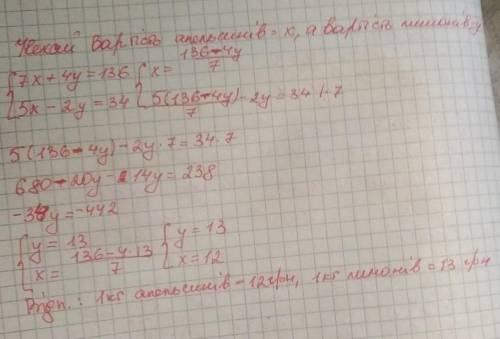 Нехай вартість апельсинів = x, а вартість лимонів y
{7x + 4y = 136 {x = (136-4y)/7
{5x - 2y = 34 {5(136-4y)/7 - 2y = 34 | · 7
5(136-4y) - 2y · 7 = 34 · 7
680 - 20y - 14y = 238
-34y = -442
{y = 13 {y = 13
{x = (136-4·13)/7 {x = 12
Відп.: 1кг апельсинів - 12 грн, 1кг лимонів = 13 грн